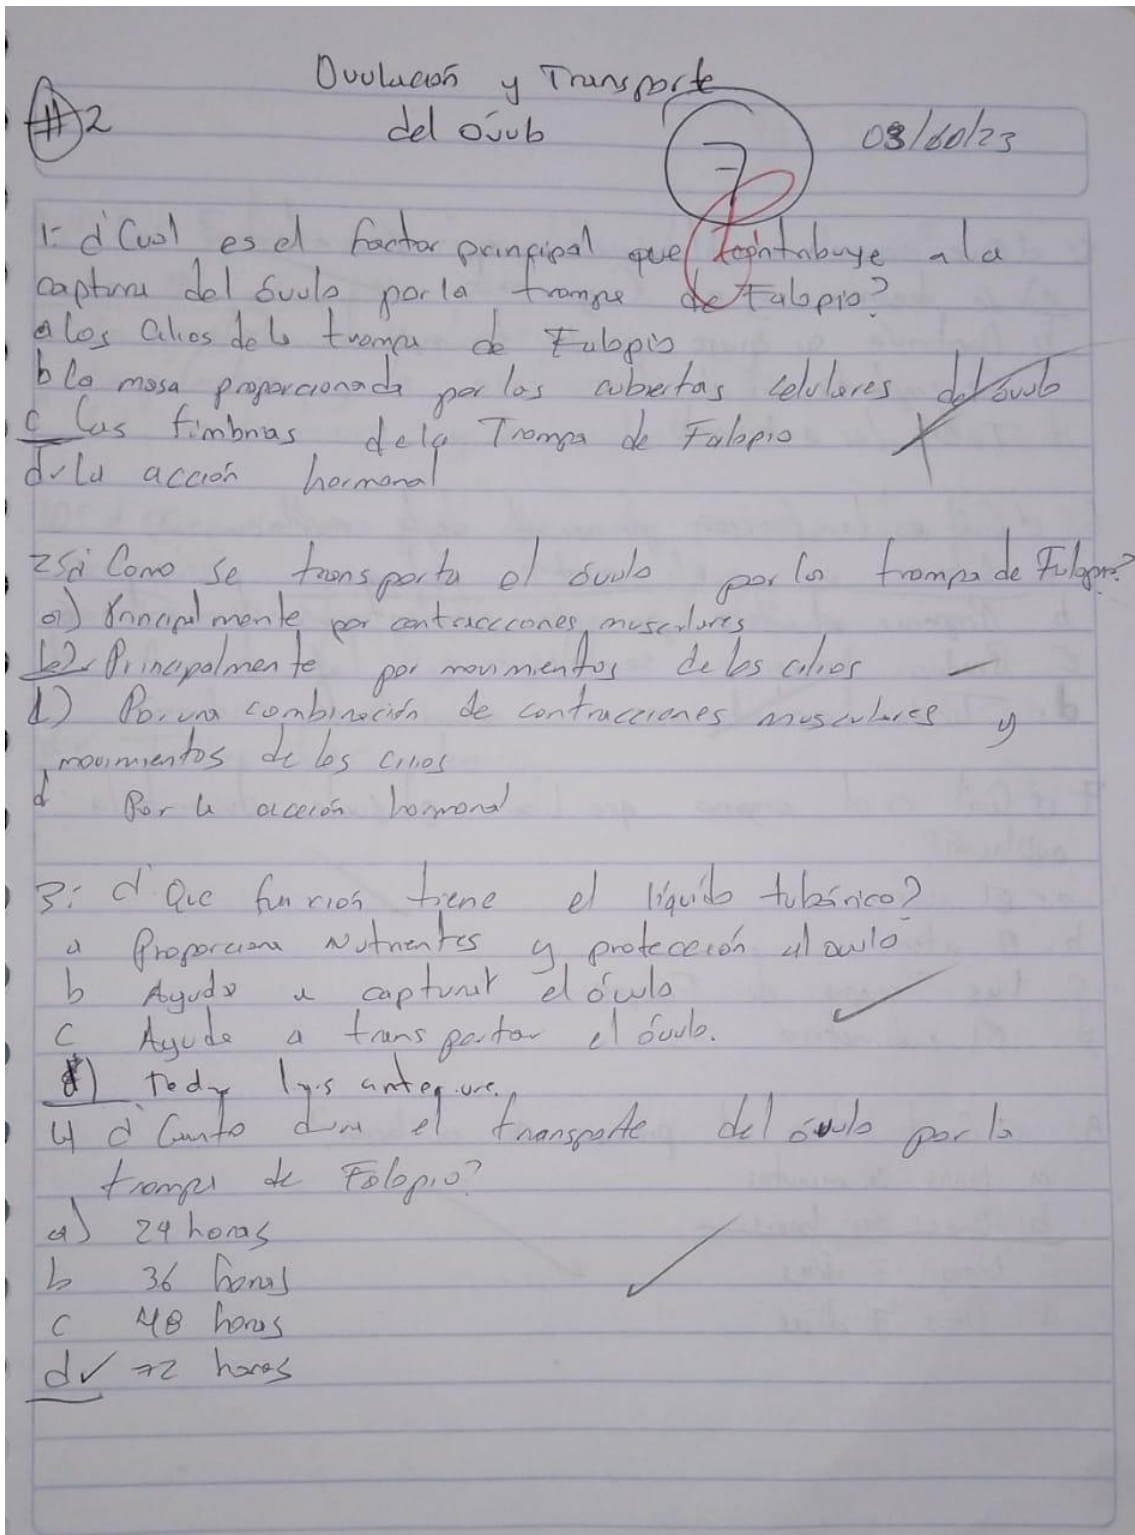 Ovulación y Transporte
#2 del óvulo 7 03/10/23
1: ¿Cual es el factor principal que contribuye a la
captura del óvulo por la trompa de Falopio?
a los cilios de la trompa de Falopio
b la masa proporcionada por las cubiertas celulares del óvulo
c las fimbrias de la Trompa de Falopio
d la acción hormonal
2 ¿Como se transporta el óvulo por la trompa de Falopio?
a) Principalmente por contracciones musculares
b) Principalmente por movimientos de los cilios
d) Por una combinación de contracciones musculares y
movimientos de los cilios
d Por la acción hormonal
3: ¿Que función tiene el líquido tubárico?
a Proporciona Nutrientes y protección al ovulo
b Ayuda a capturar el óvulo
c Ayuda a transportar el óvulo.
d)
4 ¿Cuanto dura el transporte del óvulo por la
trompa de Falopio?
a) 24 horas
b 36 horas
c 48 horas
d 72 horas